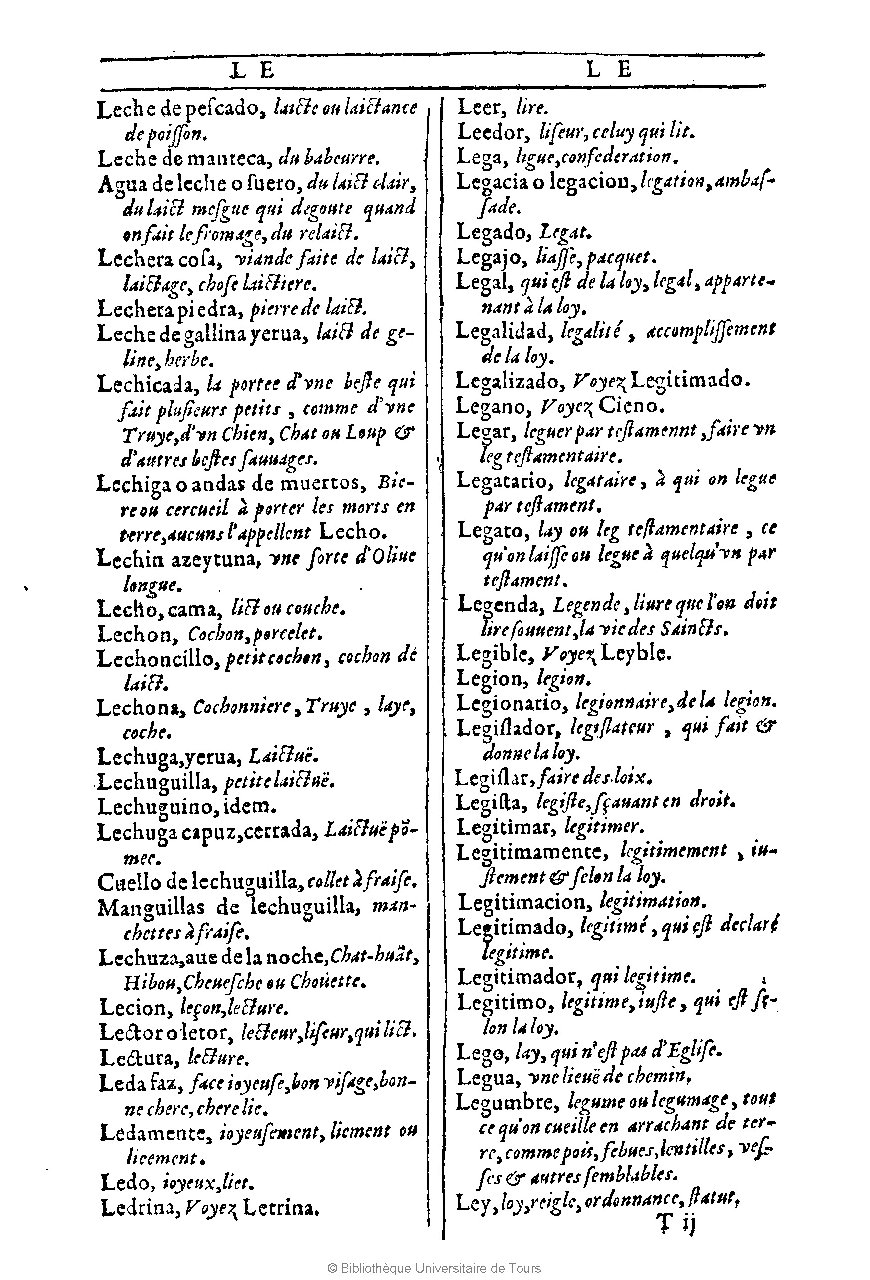 L E
Leche de pescado, laicte ou laictance
de poisson.
Leche de manteca, du babeurre.
Agua de leche o suero, du laict clair,
du laict mesgue qui degoute quand
on fait le fromage, du relaict.
Lechera cosa, viande faite de laict,
laictage, chose laictiere.
Lechera piedra, pierre de laict.
Leche de gallina yerua, laict de ge-
line, herbe.
Lechicada, la portee d'vne beste qui
fait plusieurs petits, comme d'vne
Truye, d'vn Chien, Chat ou Loup &
d'autres bestes sauuages.
Lechiga o andas de muertos, Bie-
re ou cercueil à porter les morts en
terre, aucuns l'appellent Lecho.
Lechin azeytuna, vne sorte d'Oliue
longue.
Lecho, cama, lict ou couche.
Lechon, Cochon, porcelet.
Lechoncillo, petit cochon, cochon de
laict.
Lechona, Cochonniere, Truye, laye,
coche.
Lechuga, yerua, Laictuë.
Lechuguilla, petite laictuë.
Lechuguino, idem.
Lechuga capuz, cerrada, Laictuë põ-
mee.
Cuello de lechuguilla, collet à fraise.
Manguillas de lechuguilla, man-
chettes à fraise.
Lechuza, aue de la noche, Chat-huãt,
Hibou, Cheuesche ou Choüette.
Lecion, leçon, lecture.
Lector o letor, lecteur, liseur, qui lict.
Lectura, lecture.
Leda faz, face ioyeuse, bon visage, bon-
ne chere, chere lie.
Ledamente, ioyeusement, liement ou
lieement.
Ledo, ioyeux, liet.
Ledrina, Voyez Letrina.
L E
Leer, lire.
Leedor, liseur, celuy qui lit.
Lega, ligue, confederation.
Legacia o legacion, legation, ambas-
sade.
Legado, Legat.
Legajo, liasse, pacquet.
Legal, qui est de la loy, legal, apparte-
nant à la loy.
Legalidad, legalité, accomplissement
de la loy.
Legalizado, Voyez Legitimado.
Legano, Voyez Cieno.
Legar, leguer par testamennt, faire vn
leg testamentaire.
Legatario, legataire, à qui on legue
par testament.
Legato, lay ou leg testamentaire, ce
qu'on laisse ou legue à quelqu'vn par
testament.
Legenda, Legende, liure que l'on doit
lire souuent, la vie des Saincts.
Legible, Voyez Leyble.
Legion, legion.
Legionario, legionnaire, de la legion.
Legislador, legislateur, qui fait &
donne la loy.
Legislar, faire des loix.
Legista, legiste, sçauant en droit.
Legitimar, legitimer.
Legitimamente, legitimement, iu-
stement & selon la loy.
Legitimacion, legitimation.
Legitimado, legitimé, qui est declaré
legitime.
Legitimador, qui legitime.
Legitimo, legitime, iuste, qui est se-
lon la loy.
Lego, lay, qui n'est pas d'Eglise.
Legua, vne lieuë de chemin.
Legumbre, legume ou legumage, tout
ce qu'on cueille en arrachant de ter-
re, comme pois, febues, lentilles, ves-
ses & autres semblables.
Ley, loy, reigle, ordonnance, statut,
T ij
© Bibliothèque Universitaire de Tours